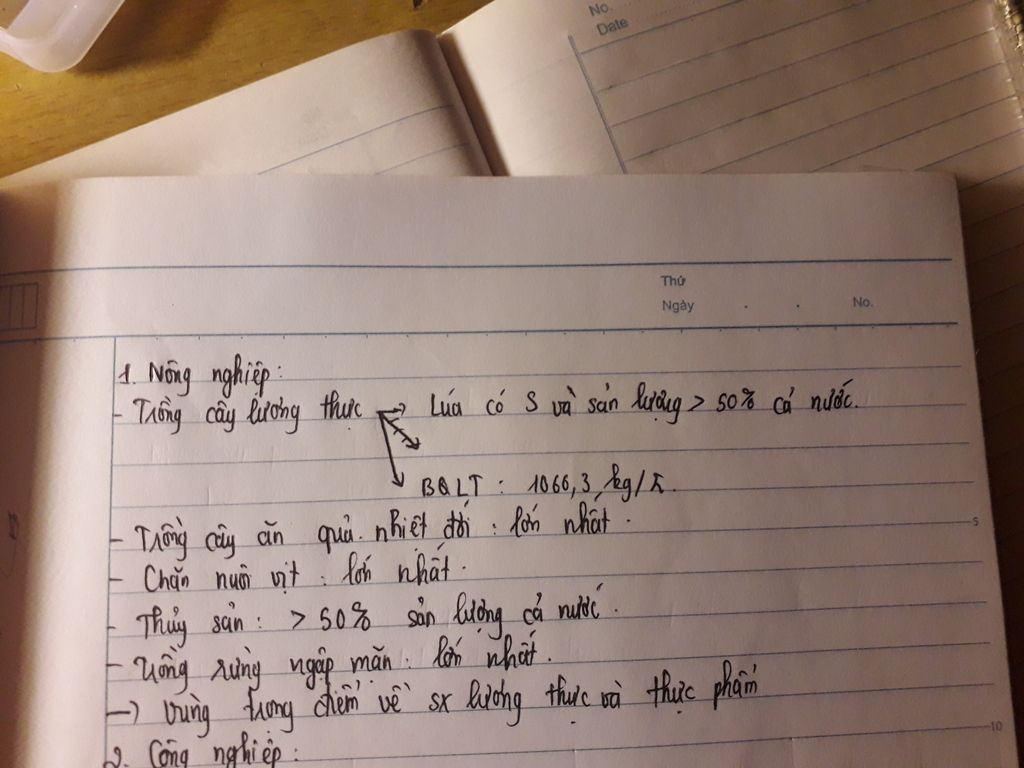 No.
Date
Thứ
Ngày . . No.
1. Nông nghiệp:
- Trồng cây lương thực → Lúa có S và sản lượng > 50% cả nước.
BQLT : 1066,3 kg/
- Trồng cây ăn quả nhiệt đới : lớn nhất.
- Chăn nuôi vịt : lớn nhất.
- Thủy sản : > 50% sản lượng cả nước.
- rừng ngập mặn : lớn nhất.
→ Vùng trọng điểm về sx lương thực và thực phẩm
2. Công nghiệp :
5
10